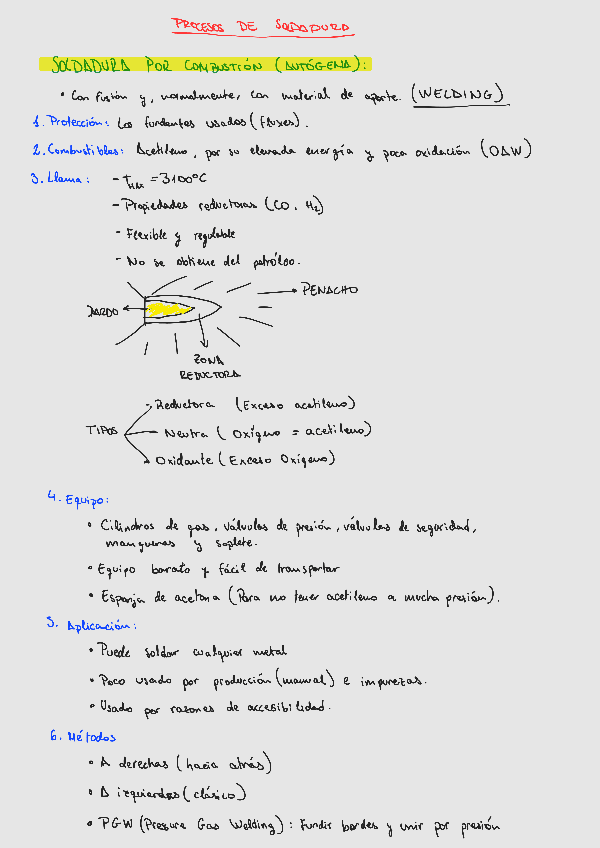 PROCESOS DE SOLDADURA
SOLDADURA POR COMBUSTIÓN (AUTÓGENA):
• Con fusión y, normalmente, con material de aporte. (WELDING)
1. Protección: Los fundantes usados (Fluxes).
2. Combustibles: Acetileno, por su elevada energía y poca oxidación (OAW)
3. Llama: - tmáx = 3100°C
- Propiedades reductoras (CO, H2)
- Flexible y regulable
- No se obtiene del petróleo.
DARDO
PENACHO
ZONA
REDUCTORA
TIPOS
Reductora (Exceso acetileno)
Neutra (Oxígeno = acetileno)
Oxidante (Exceso Oxígeno)
4. Equipo:
• Cilindros de gas, válvulas de presión, válvulas de seguridad,
mangueras y soplete.
• Equipo barato y fácil de transportar
• Esponja de acetona (Para no tener acetileno a mucha presión).
5. Aplicación:
• Puede soldar cualquier metal
• Poco usado por producción (manual) e impurezas.
• Usado por razones de accesibilidad.
6. Métodos
• A derechas (hacia atrás)
• A izquierdas (clásico)
• PGW (Pressure Gas Welding): Fundir bordes y unir por presión